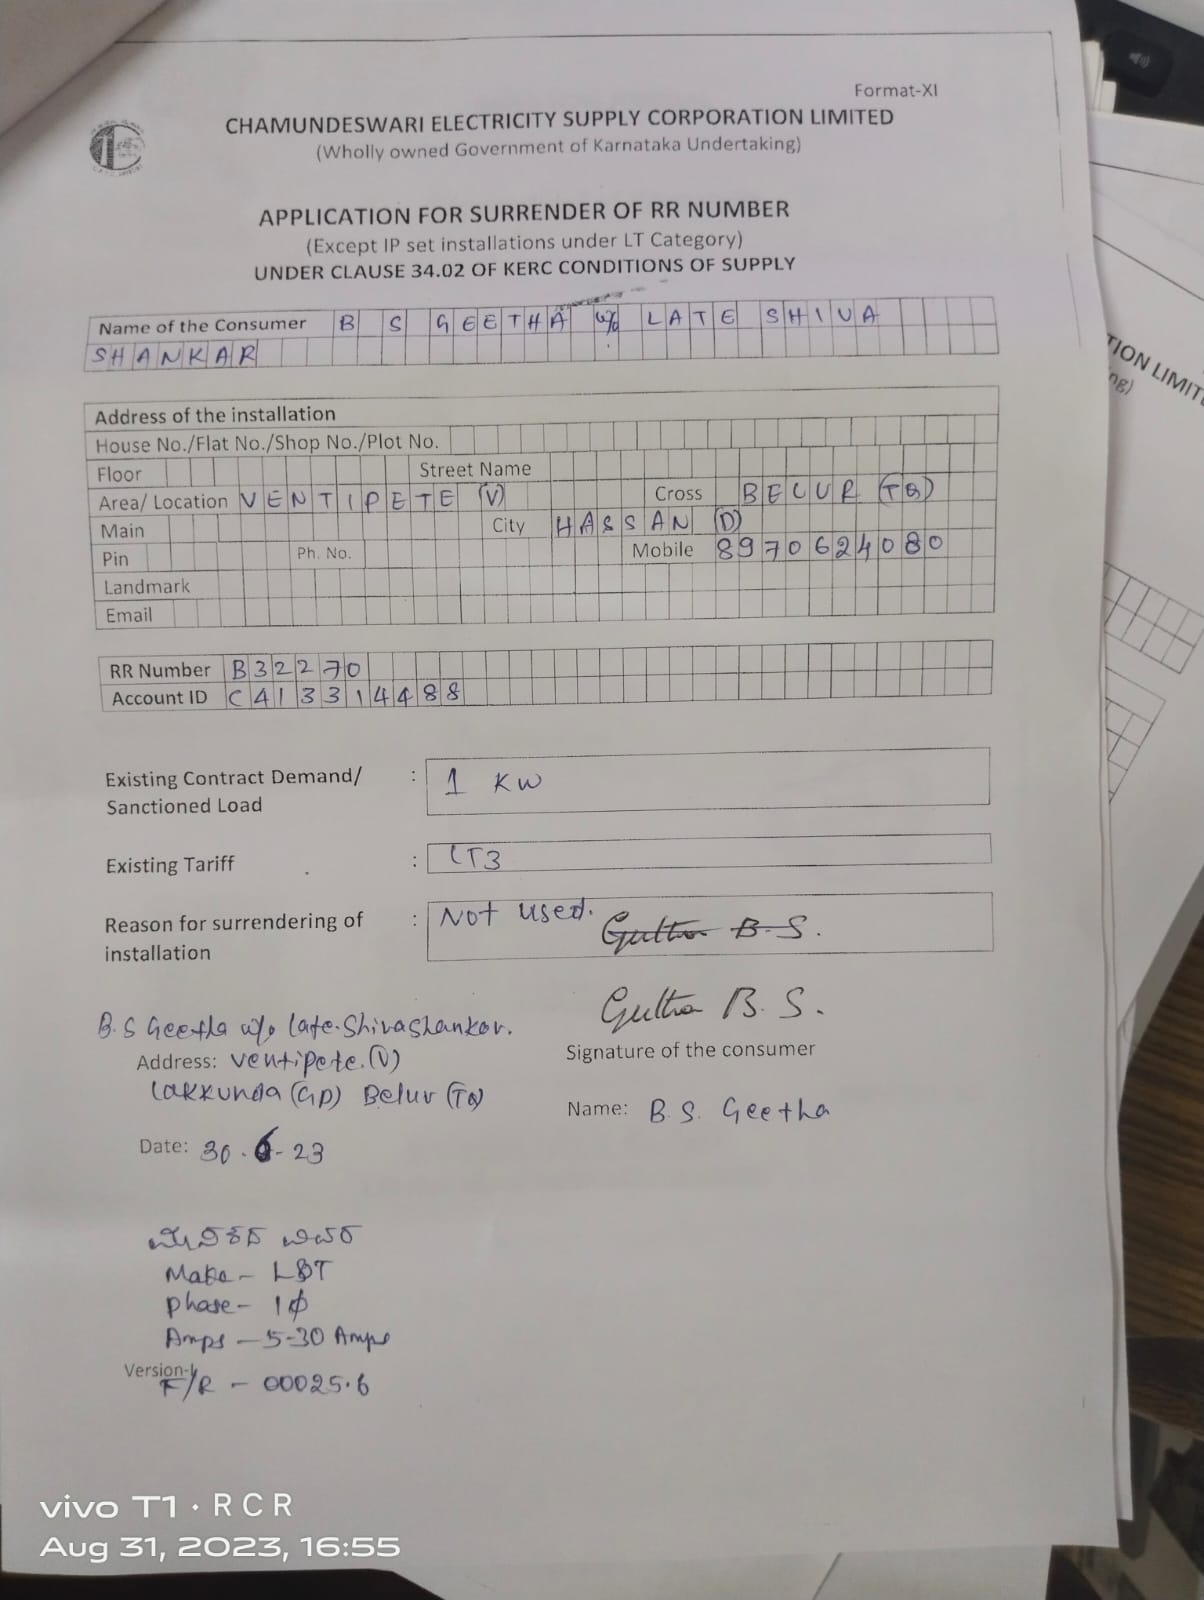 Format-XI
CHAMUNDESWARI ELECTRICITY SUPPLY CORPORATION LIMITED
(Wholly owned Government of Karnataka Undertaking)
APPLICATION FOR SURRENDER OF RR NUMBER
(Except IP set installations under LT Category)
UNDER CLAUSE 34.02 OF KERC CONDITIONS OF SUPPLY
Name of the Consumer B S GEETHA W/o LATE SHIVA
SHANKAR
Address of the installation
House No./Flat No./Shop No./Plot No.
Floor Street Name
Area/ Location VENTIPETE (V) Cross BELUR (TQ)
Main City HASSAN (D)
Pin Ph. No. Mobile 8970624080
Landmark
Email
RR Number B32270
Account ID C413314488
Existing Contract Demand/ : 1 KW
Sanctioned Load
Existing Tariff : LT3
Reason for surrendering of : Not used.
installation
B.S Geetha w/o late. Shivashankar.
Signature of the consumer
Address: Ventipete.(V)
Lakkunda (GP) Belur (TQ)
Name: B.S. Geetha
Date: 30.6-23
Make - L&T
phase - 1ϕ
Amps - 5-30 Amps
Version-I
F/R - 00025.6
TION LIMIT
ng)
vivo T1 · RCR
Aug 31, 2023, 16:55